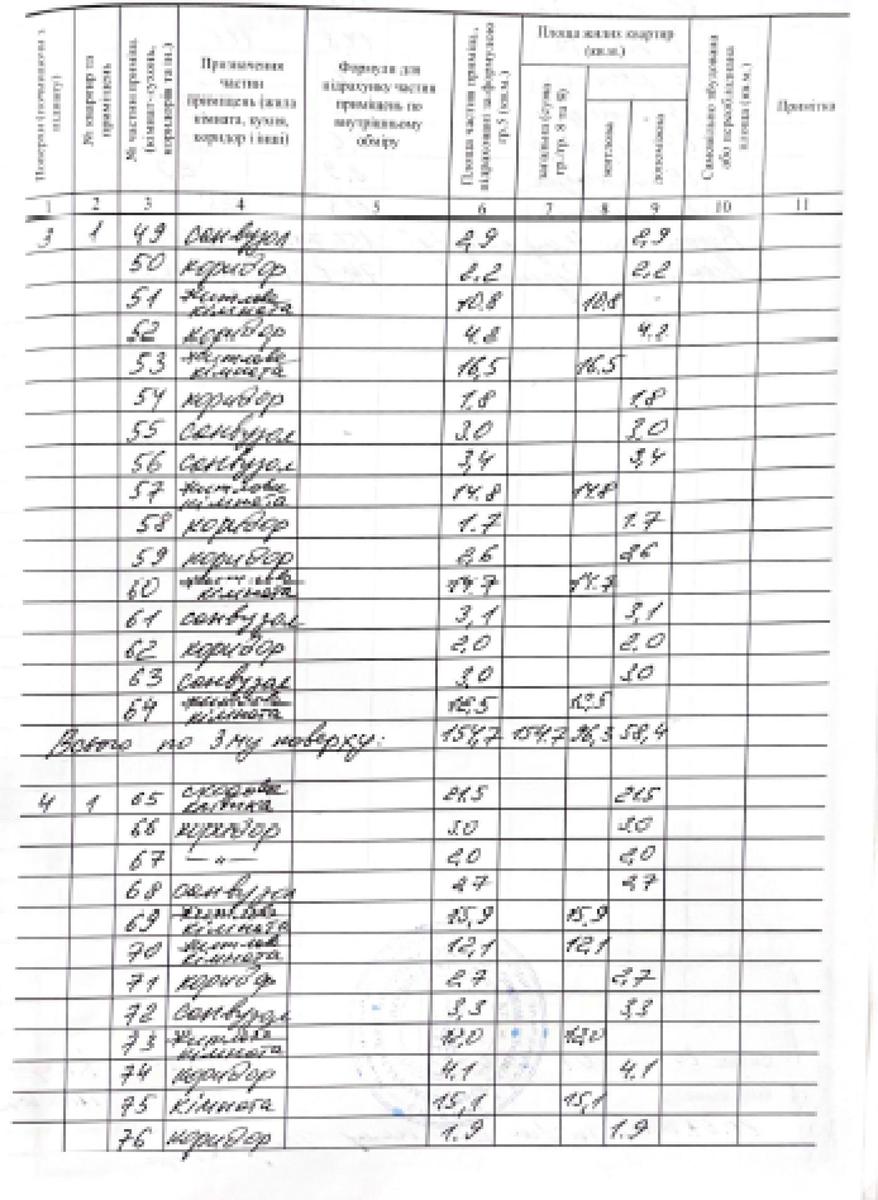 Поверхи (починаючи з підвалу) | № квартир та приміщень | № частин приміщ. (кімнат-кухонь, коридорів та ін.) | Призначення частин приміщень (жила кімната, кухня, коридор і інші) | Формули для підрахунку частин приміщень по внутрішньому обміру | Площа частин приміщ., підрахованої за формулою гр.5 (кв.м.) | Площа жилих квартир (кв.м.) | загальна (сума гр./гр. 8 та 9) | житлова | допоміжна | Самовільно збудована або переобладнана площа (кв.м.) | Примітка
1 2 3 4 5 6 7 8 9 10 11
3 1 49 санвузол 2,9 2,9
50 коридор 2.2 2,2
51 житлова кімната 10.8 10.8
52 коридор 4.8 4.8
53 житлова кімната 16,5 16.5
54 коридор 1.8 1.8
55 санвузол 3.0 3,0
56 санвузол 3,4 3,4
57 житлова кімната 14.8 14.8
58 коридор 1.7 1.7
59 коридор 2,6 2,6
60 житлова кімната 14.7 14.7
61 санвузол 3,1 3,1
62 коридор 2,0 2,0
63 санвузол 3,0 3.0
64 житлова кімната
Всього по 3му поверху: 154,7 154.7 96,3 58,4
4 1 65 сходова клітка 21.5 21.5
66 коридор 3.0 3.0
67 — „ — 2,0 2,0
68 санвузол 2,7 2,7
69 житлова кімната 15,9 15,9
70 житлова кімната 12,1 12,1
71 коридор 2,7 2,7
72 санвузол 3,3 3.3
73 житлова кімната 12,0 12,0
74 коридор 4.1 4.1
75 кімната 15,1 15,1
76 коридор 1.9 1.9